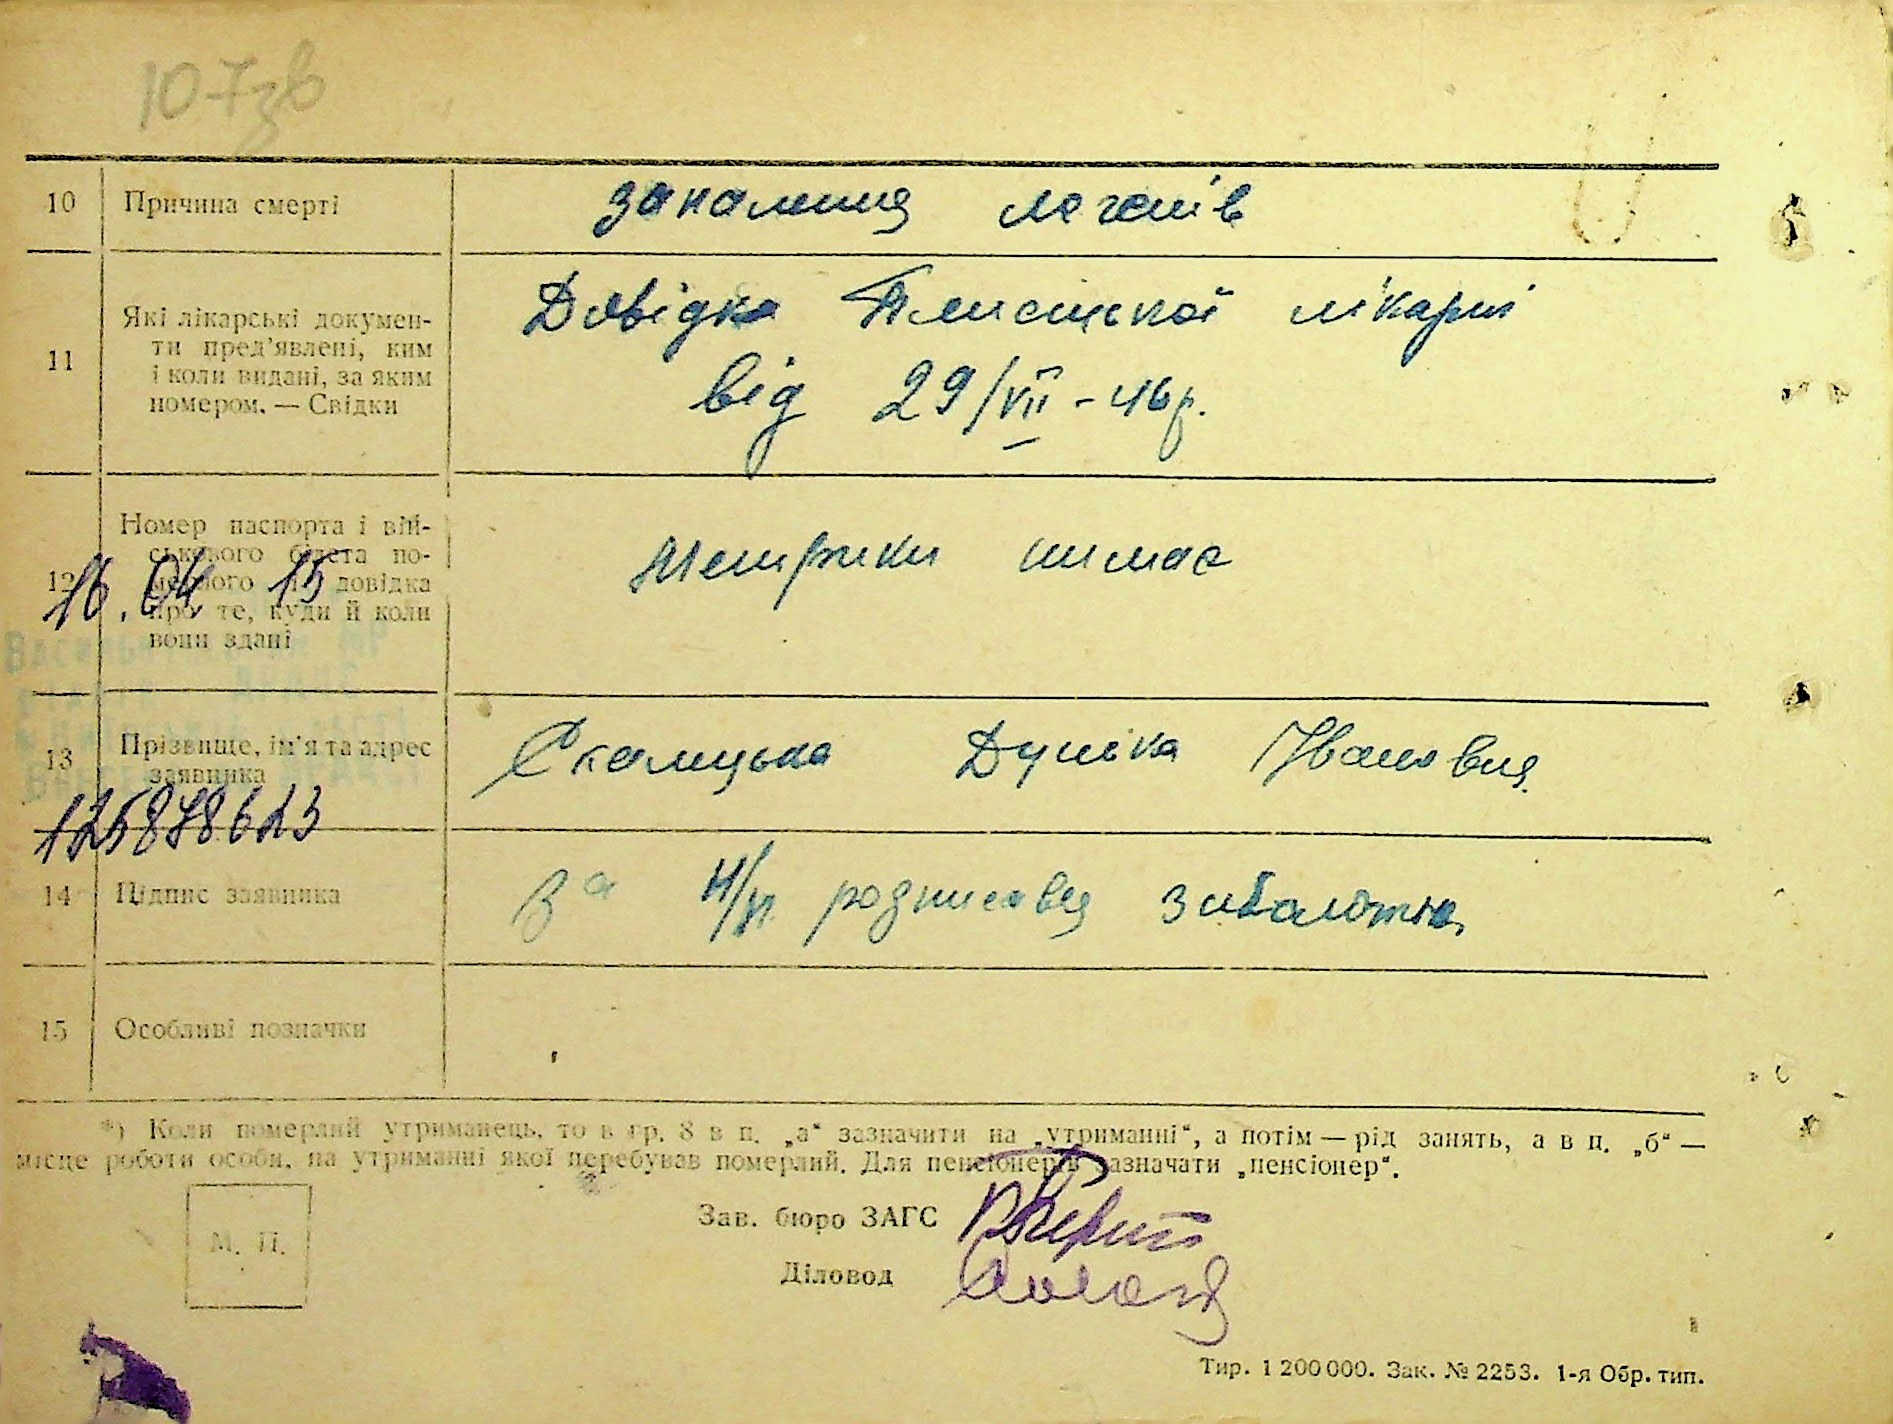 107зв
10 Причина смерті запаления легенів
11 Які лікарські докумен-
ти пред'явлені, ким
і коли видані, за яким
номером. — Свідки
Довідка Плисецької лікарні
від 29/VII - 46 р.
12 Номер паспорта і вій-
ськового білета по-
мерлого і довідка
про те, куди й коли
вони здані
Метрики нимає
16.04 15
13 Прізвище, ім'я та адрес
заявника
Скалицька Дунька Івановна
125878623
14 Підпис заявника За н/п розписавсь
15 Особливі позначки
*) Коли померлий утриманець, то в гр. 8 в п. „а“ зазначити на „утриманні“, а потім — рід занять, а в п. „б“ —
місце роботи особи, на утриманні якої перебував померлий. Для пенсіонерів зазначати „пенсіонер“.
М. П.
Зав. бюро ЗАГС
Діловод
Тир. 1 200 000. Зак. № 2253. 1-я Обр. тип.